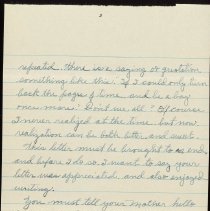 repeated. There is a saying or quotation
something like this: If I could only turn
back the pages of time, and be a boy
once more! Don't we all? Of course
I never realized at the time, but now
realization can be both bitter and sweet.
This letter must be brought to an end,
and before I do so I want to say your
letter was appreciated, and also enjoyed
writing.
You must tell your mother hello